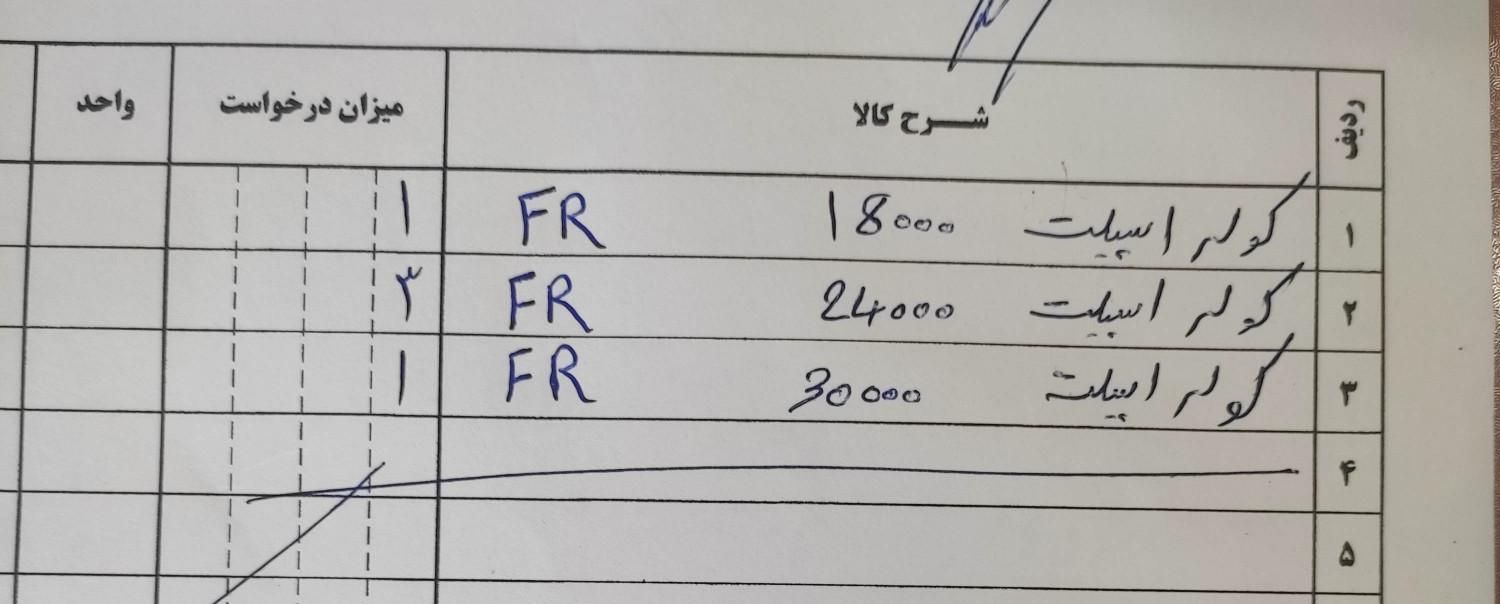 ردیف شرح کالا میزان درخواست واحد
۱ کولر اسپلت 18000 FR ۱
۲ کولر اسپلت 24000 FR ۳
۳ کولر اسپلت 30000 FR ۱
۴
۵